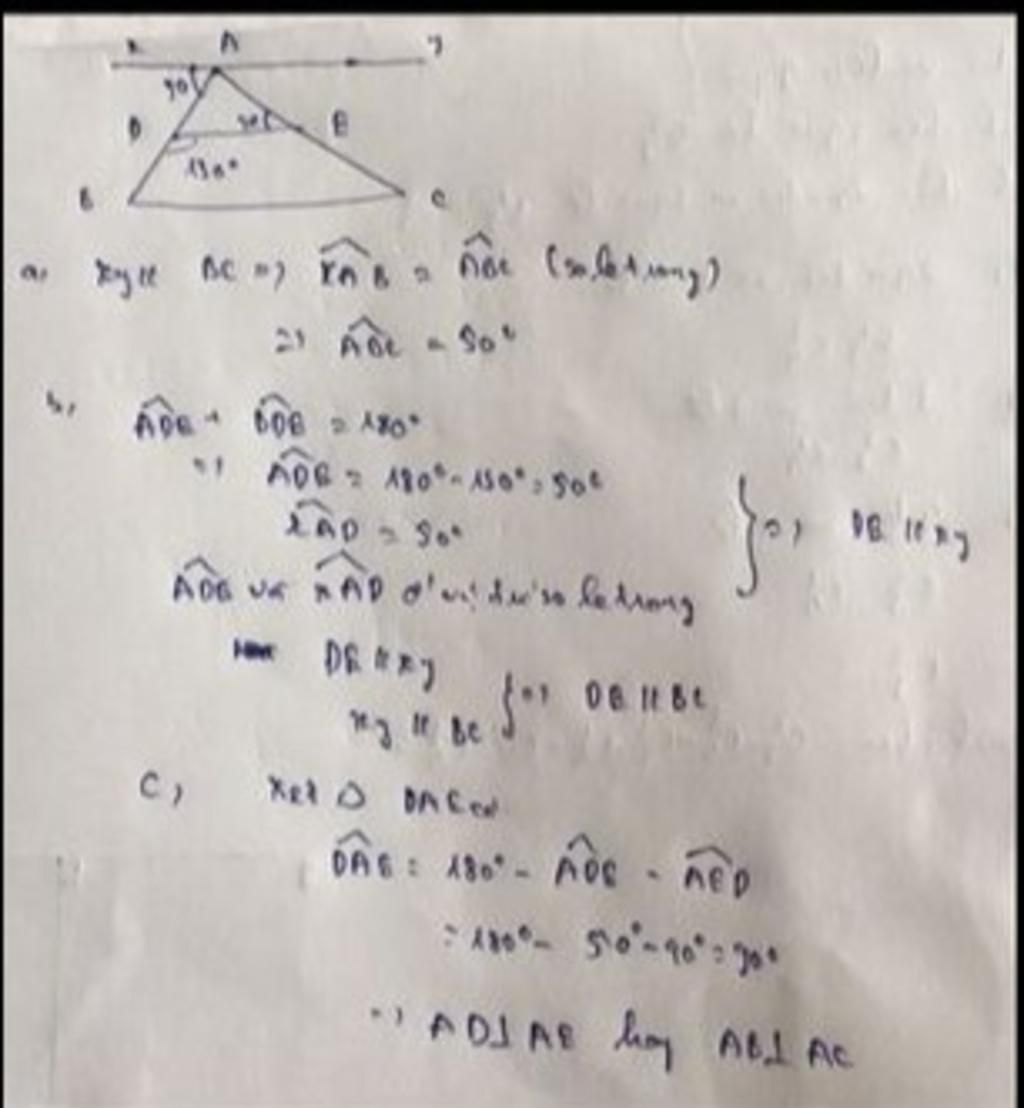 x A y
50
D 40 E
130°
B C
a, xy // BC => xAB = ABC (so le trong)
=> ABC = 50°
b, ADE + BDE = 180°
=> ADE = 180° - 130° = 50°
xAD = 50°
ADE và xAD ở vị trí so le trong
} => DE // xy
DE // xy
xy // BC
} => DE // BC
C, Xét △ DAE có
DAE = 180° - ADE - AED
= 180° - 50° - 40° = 90°
=> AD ⊥ AE hay AB ⊥ AC